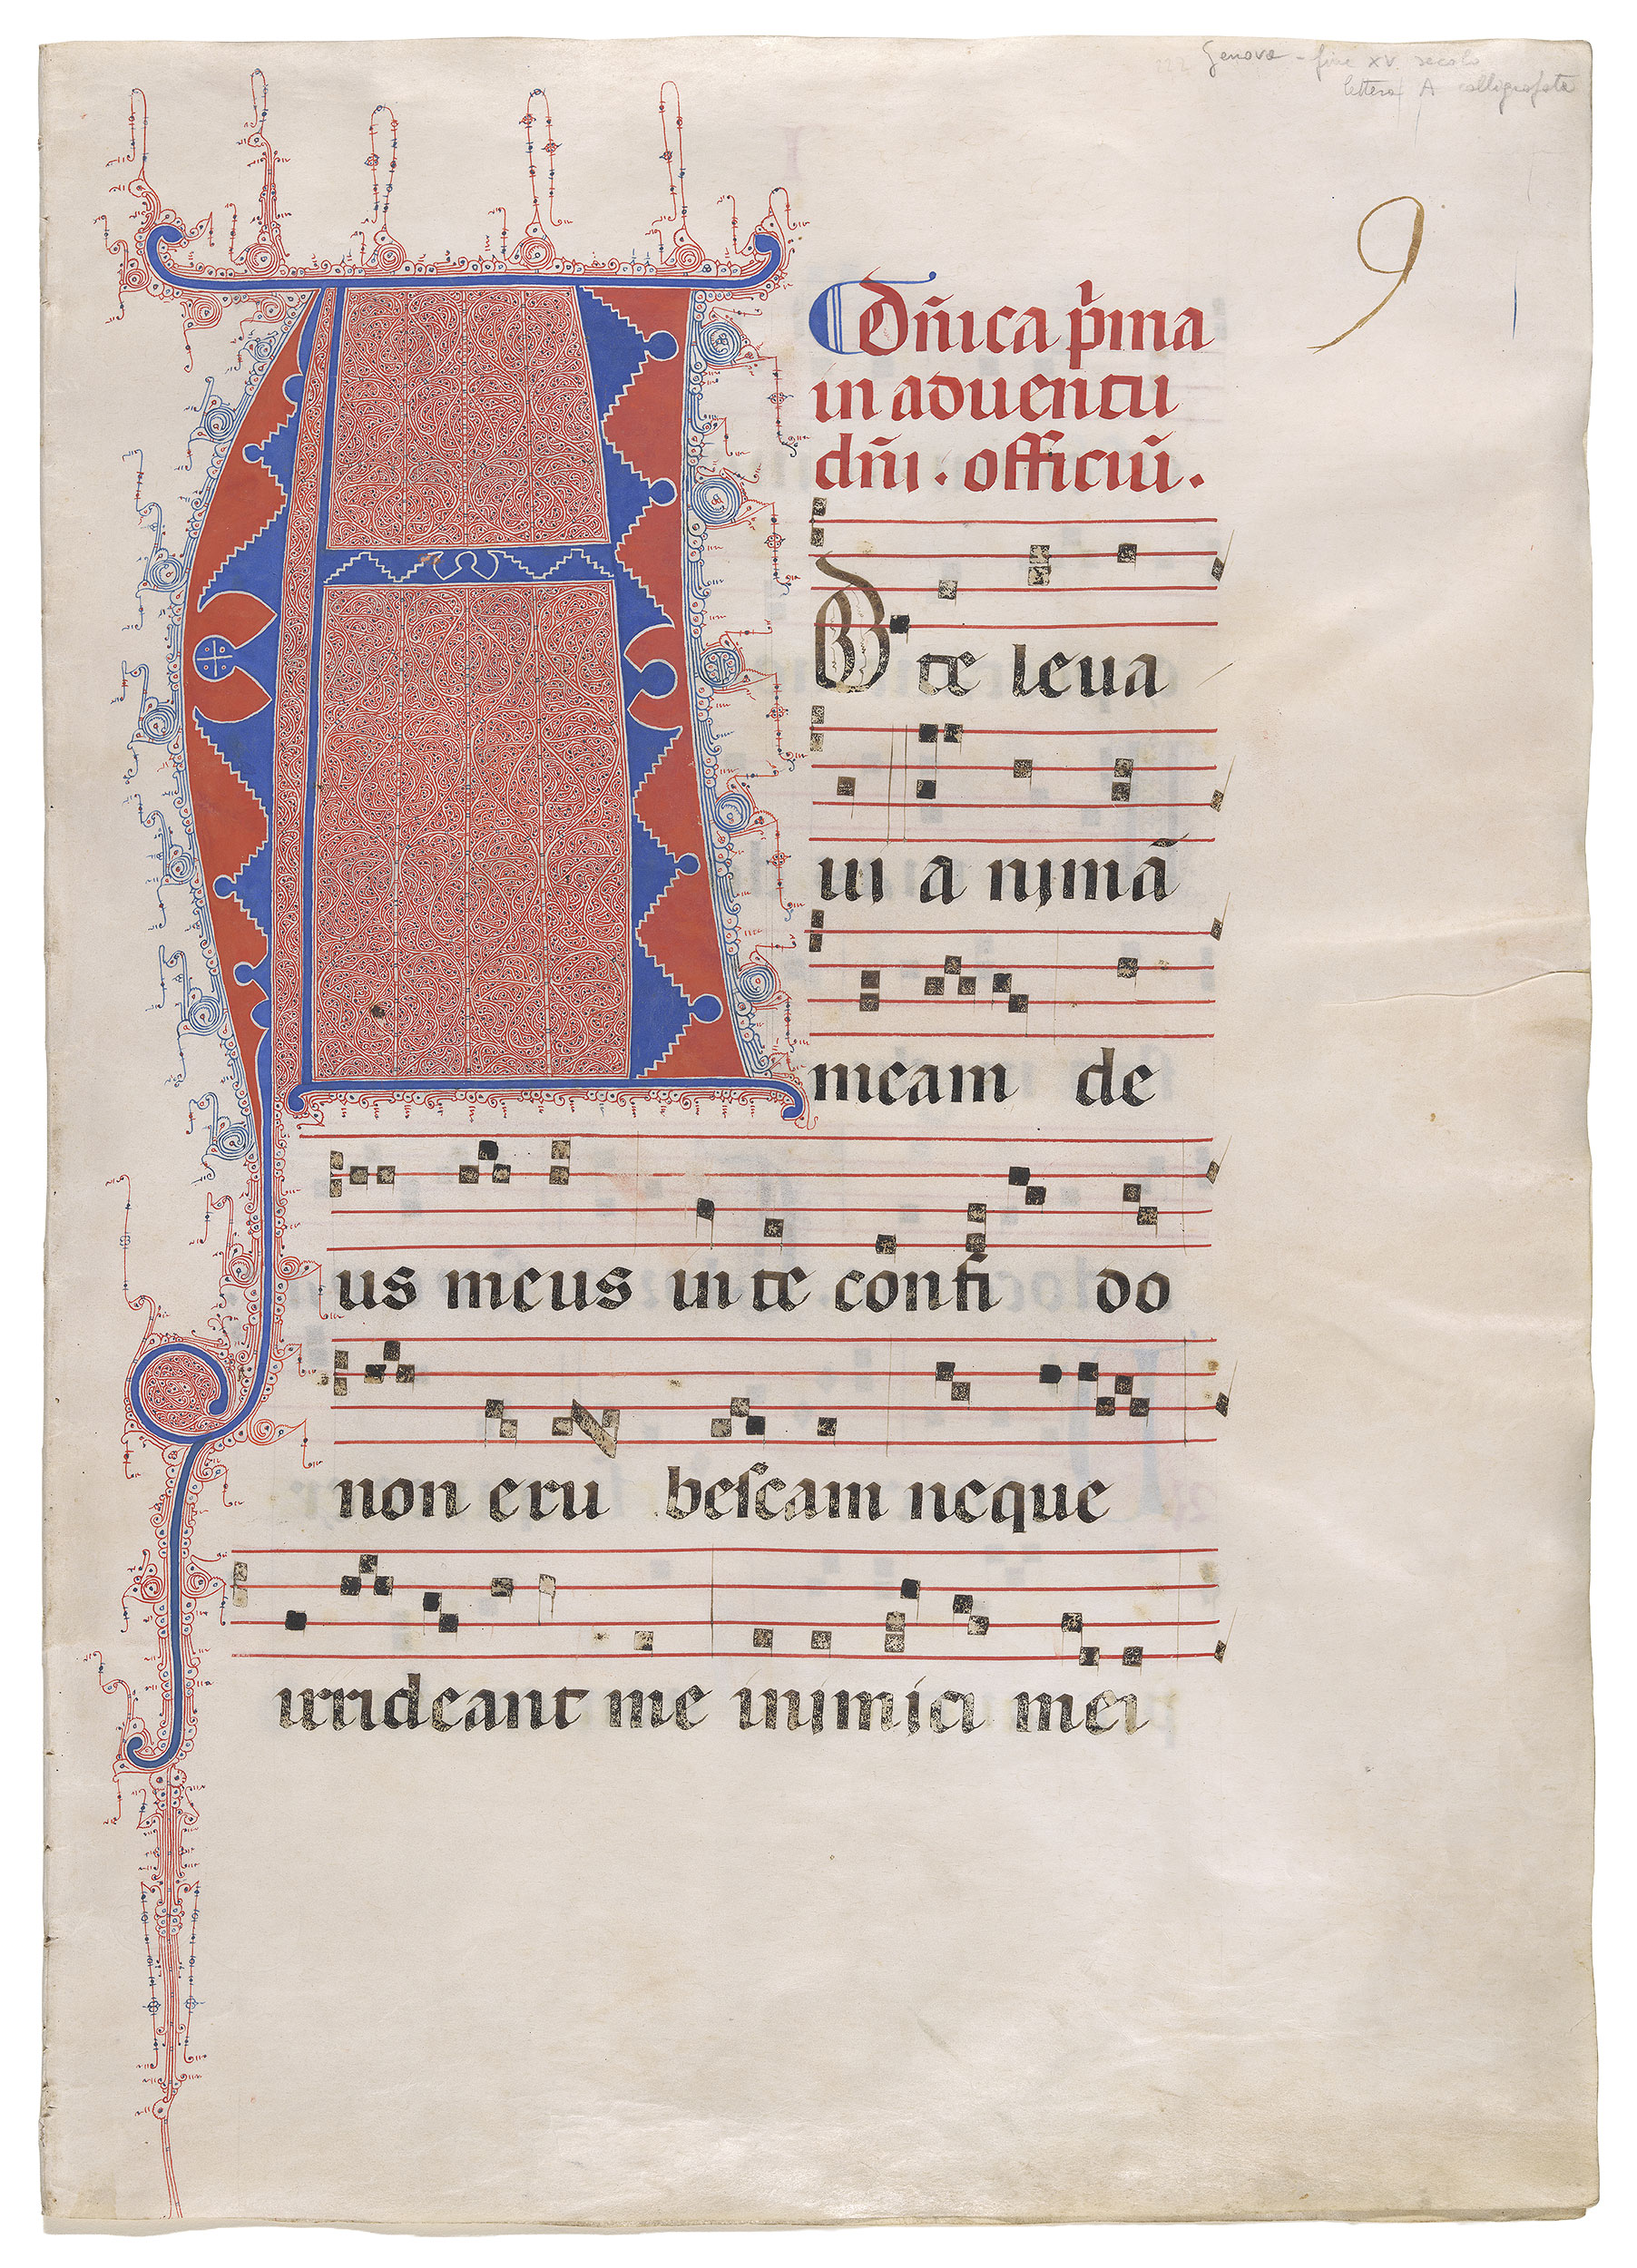 Genova - fine XV secolo
lettera A calligrafata
9
Dn̄ica p̄ima
in aduentu
dn̄i · officiū ·
A
D te leua
ui a nimā
meam de
us meus in te confi do
non eru beſcam neque
irrideant me inimici mei